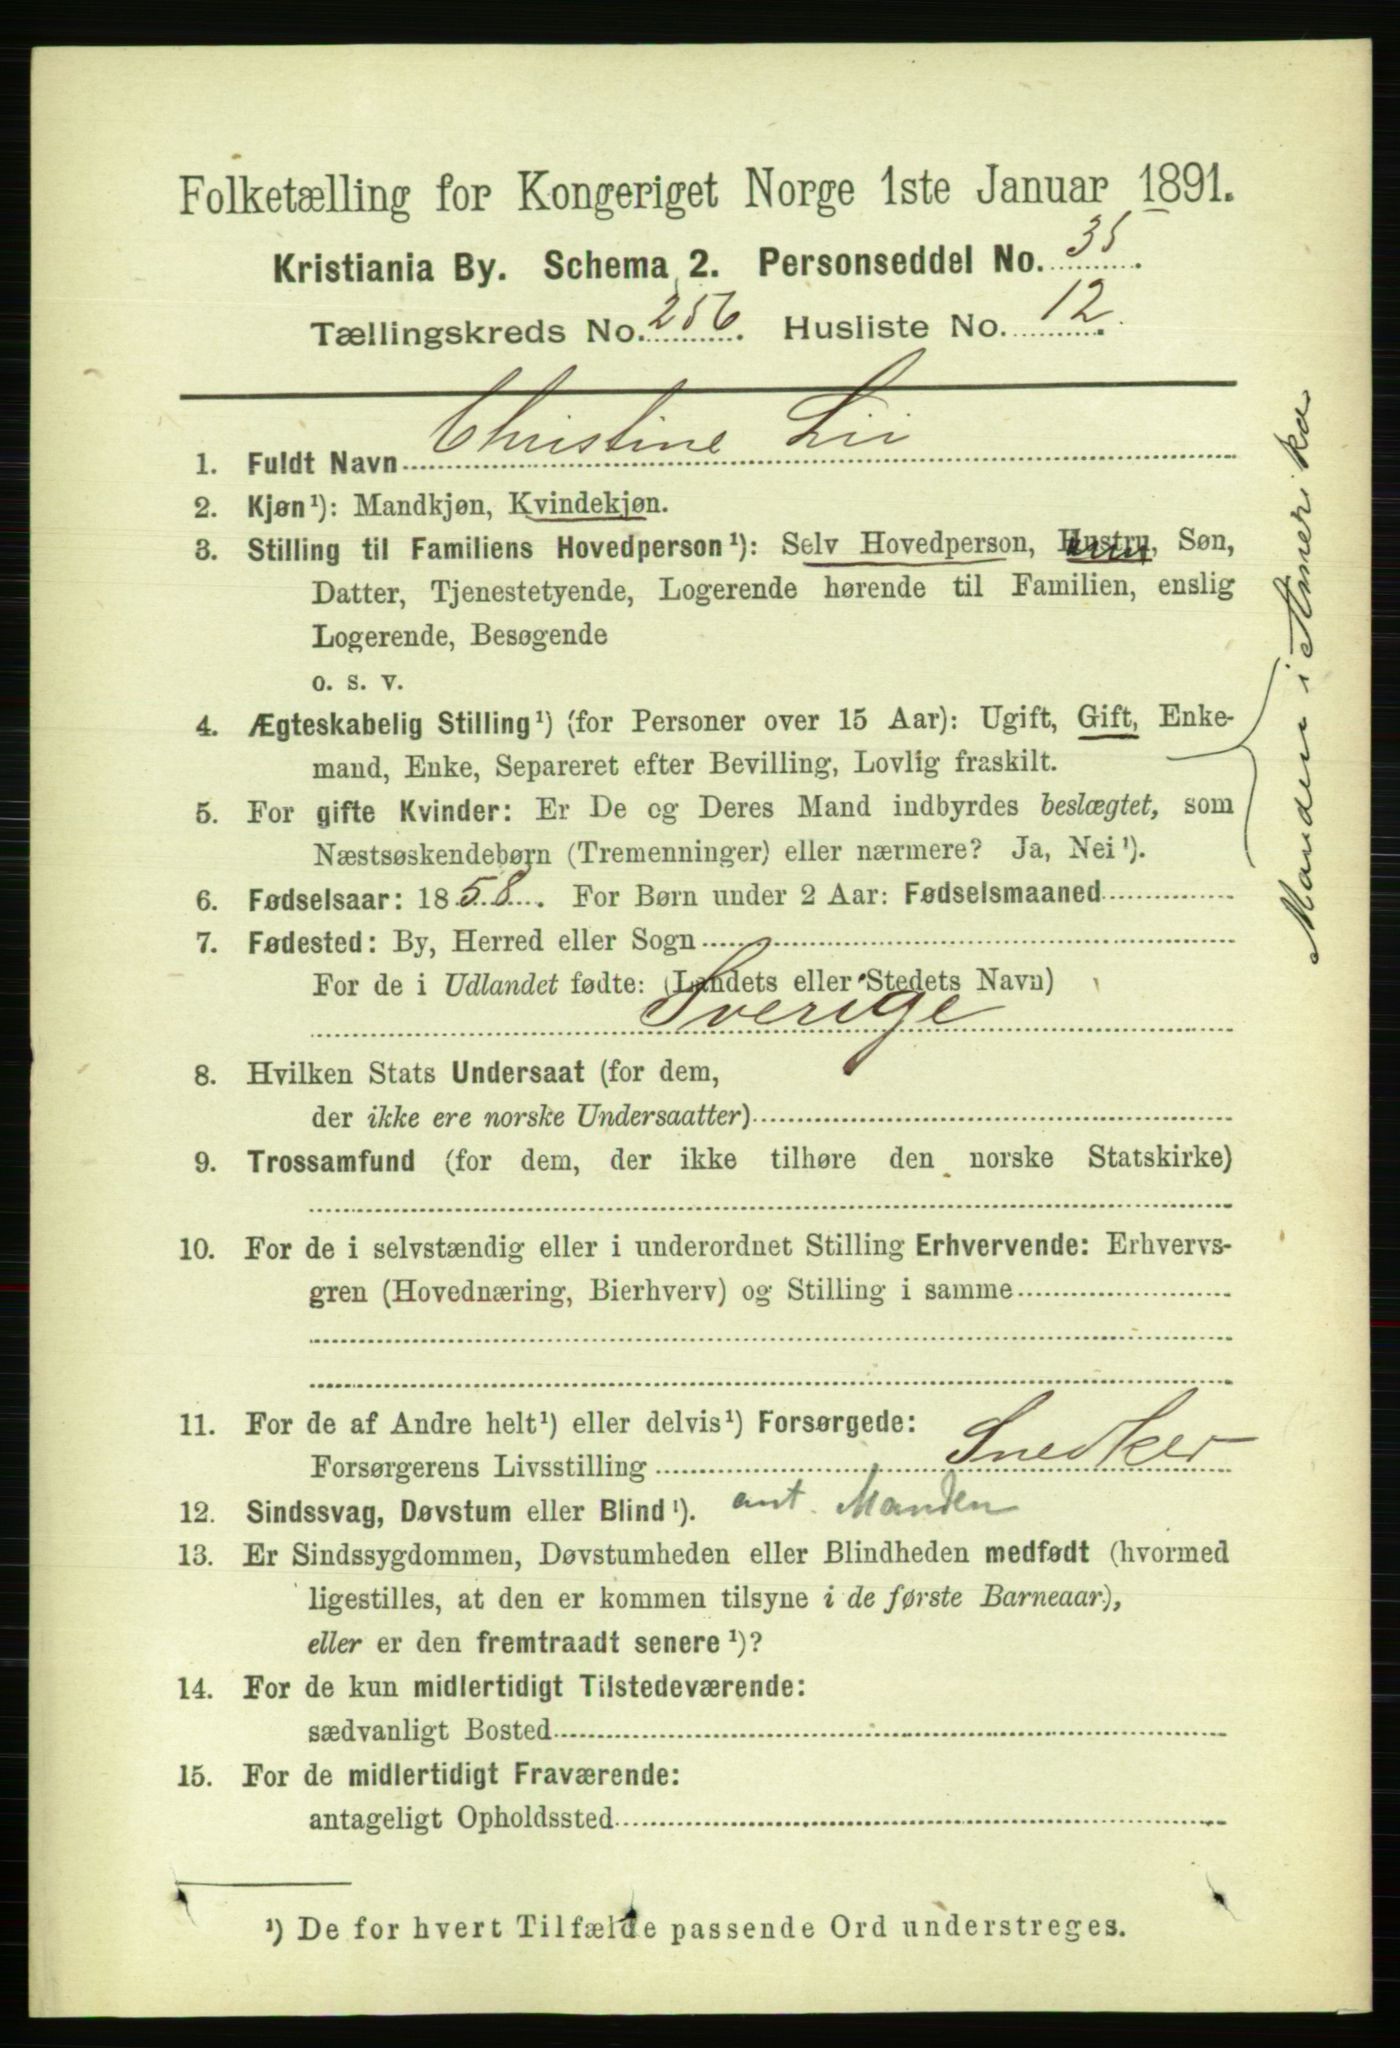 Folketælling for Kongeriget Norge 1ste Januar 1891.
Kristiania By. Schema 2. Personseddel No. 35.
Tællingskreds No. 256. Husliste No. 12.
1. Fuldt Navn Christine Lii
2. Kjøn¹): Mandkjøn, Kvindekjøn.
3. Stilling til Familiens Hovedperson¹): Selv Hovedperson, Hustru, Søn,
Datter, Tjenestetyende, Logerende hørende til Familien, enslig
Logerende, Besøgende
o. s. v.
4. Ægteskabelig Stilling¹) (for Personer over 15 Aar): Ugift, Gift, Enke-
mand, Enke, Separeret efter Bevilling, Lovlig fraskilt.
5. For gifte Kvinder: Er De og Deres Mand indbyrdes beslægtet, som
Næstsøskendebørn (Tremenninger) eller nærmere? Ja, Nei¹).
Manden i Amerika
6. Fødselsaar: 1858. For Børn under 2 Aar: Fødselsmaaned
7. Fødested: By, Herred eller Sogn
For de i Udlandet fødte: (Landets eller Stedets Navn)
Sverige
8. Hvilken Stats Undersaat (for dem,
der ikke ere norske Undersaatter)
9. Trossamfund (for dem, der ikke tilhøre den norske Statskirke)
10. For de i selvstændig eller i underordnet Stilling Erhvervende: Erhvervs-
gren (Hovednæring, Bierhverv) og Stilling i samme
11. For de af Andre helt¹) eller delvis¹) Forsørgede:
Forsørgerens Livsstilling Snedker
12. Sindssvag, Døvstum eller Blind¹). ant. Manden
13. Er Sindssygdommen, Døvstumheden eller Blindheden medfødt (hvormed
ligestilles, at den er kommen tilsyne i de første Barneaar),
eller er den fremtraadt senere¹)?
14. For de kun midlertidigt Tilstedeværende:
sædvanligt Bosted
15. For de midlertidigt Fraværende:
antageligt Opholdssted
¹) De for hvert Tilfælde passende Ord understreges.